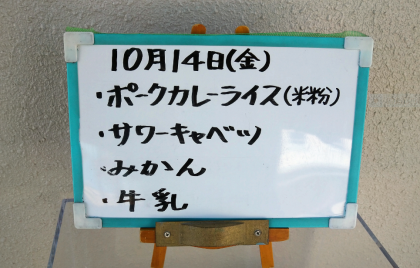 10月14日(金)
・ポークカレーライス(米粉)
・サワーキャベツ
・みかん
・牛乳